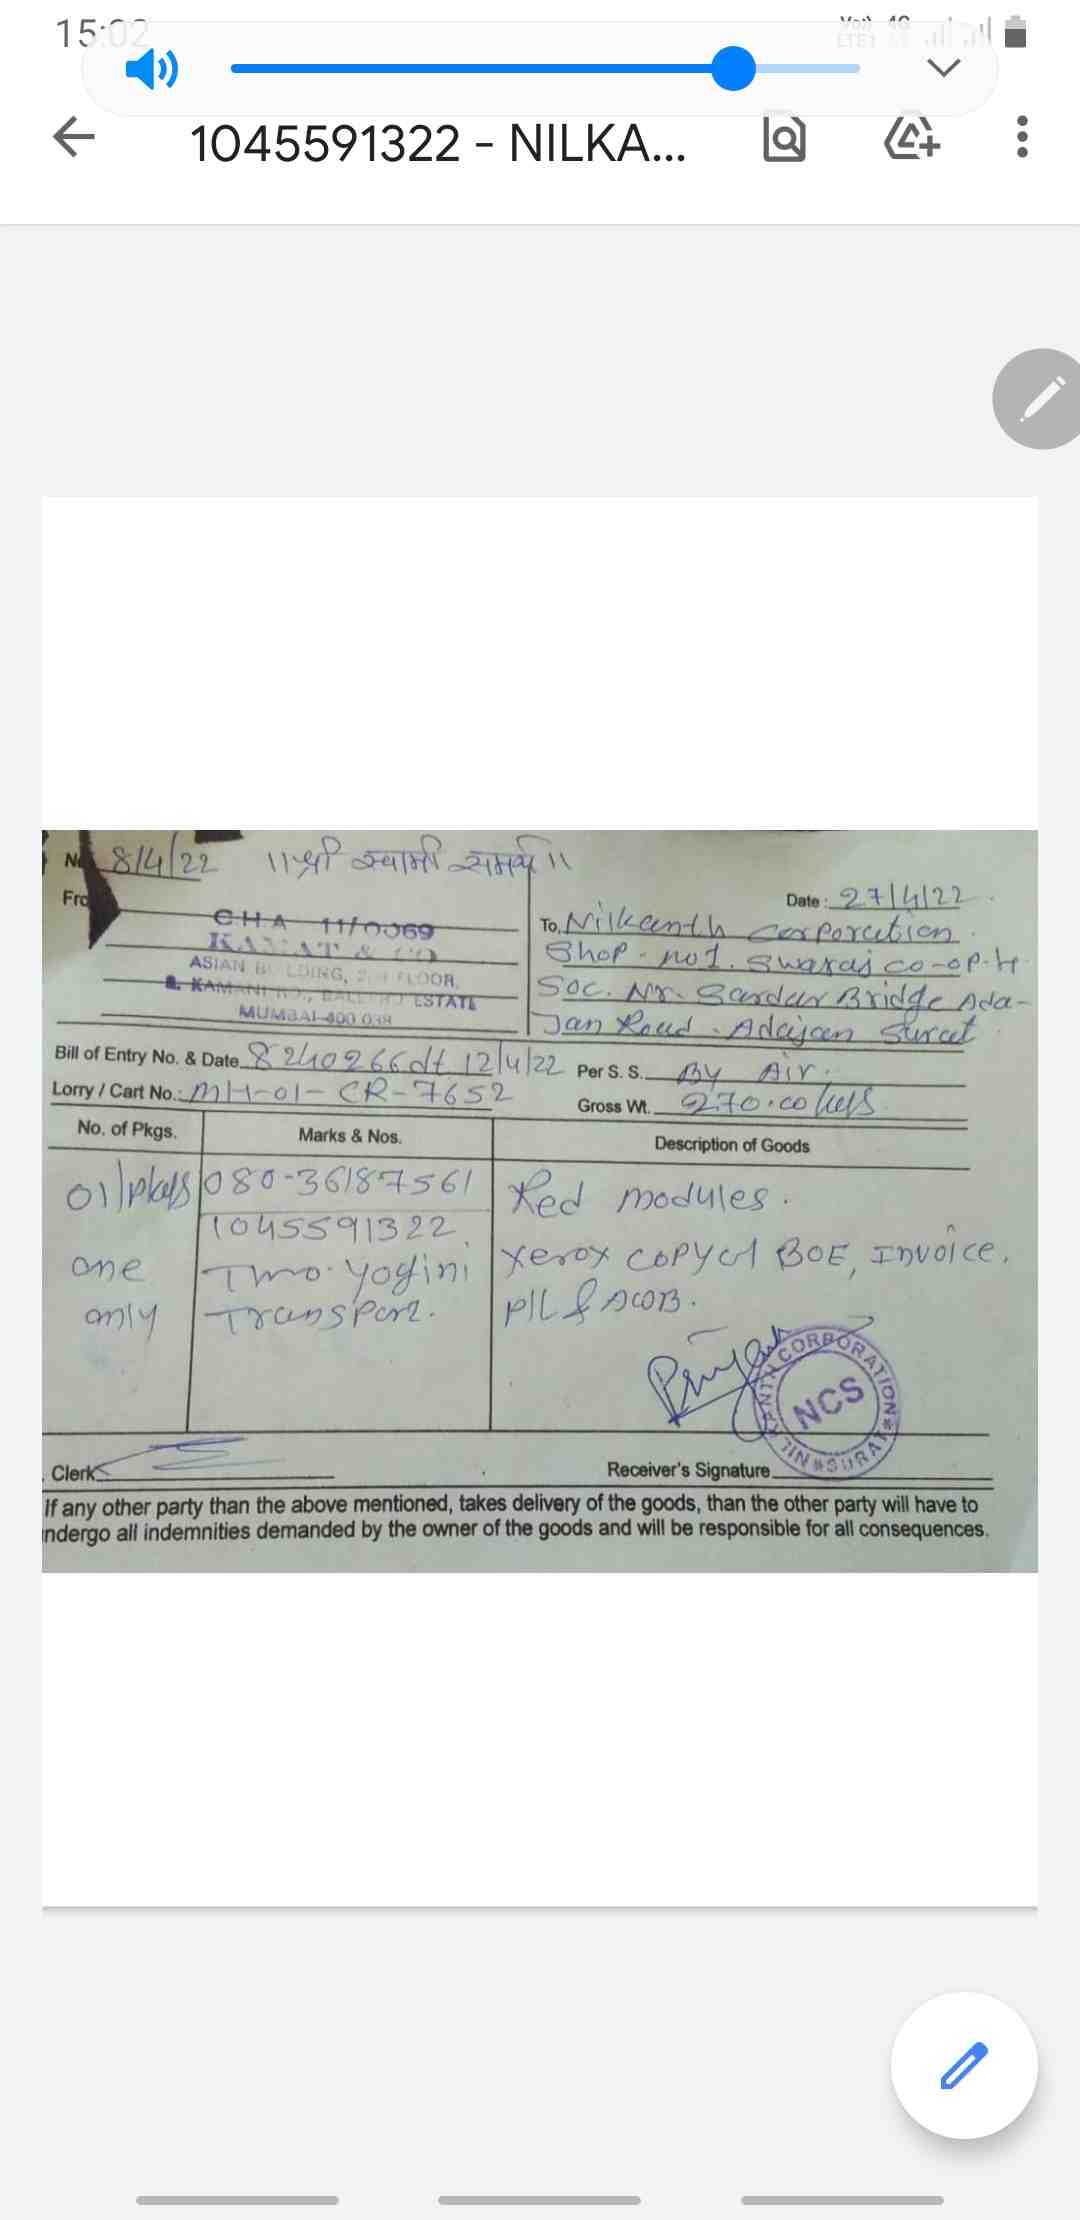 15:02
1045591322 - NILKA...
No 8/4/22 ॥श्री स्वामी समर्थ॥
Date : 27/4/22
From
C.H.A 11/0069
KAMAT & CO
ASIAN BUILDING, FLOOR,
KAMANI RD., BALLARD ESTATE
MUMBAI-400 038
To, Nilkanth Corporation
Shop - no 1. Swaraj co-op. H
Soc. Nr. Sardar Bridge Ada-
Jan Road - Adajan Surat
Bill of Entry No. & Date 8240266 dt 12/4/22 Per S. S. By Air.
Lorry / Cart No.: MH-01-CR-7652 Gross Wt. 270.00 kgs
No. of Pkgs. Marks & Nos. Description of Goods
01/pkgs 080-36187561 Red modules.
1045591322
one Two. Yogini Xerox copy of BOE, Invoice,
only Transport. P/L &
NILKANTH CORPORATION * SURAT *
NCS
Clerk Receiver's Signature
If any other party than the above mentioned, takes delivery of the goods, than the other party will have to
ndergo all indemnities demanded by the owner of the goods and will be responsible for all consequences.